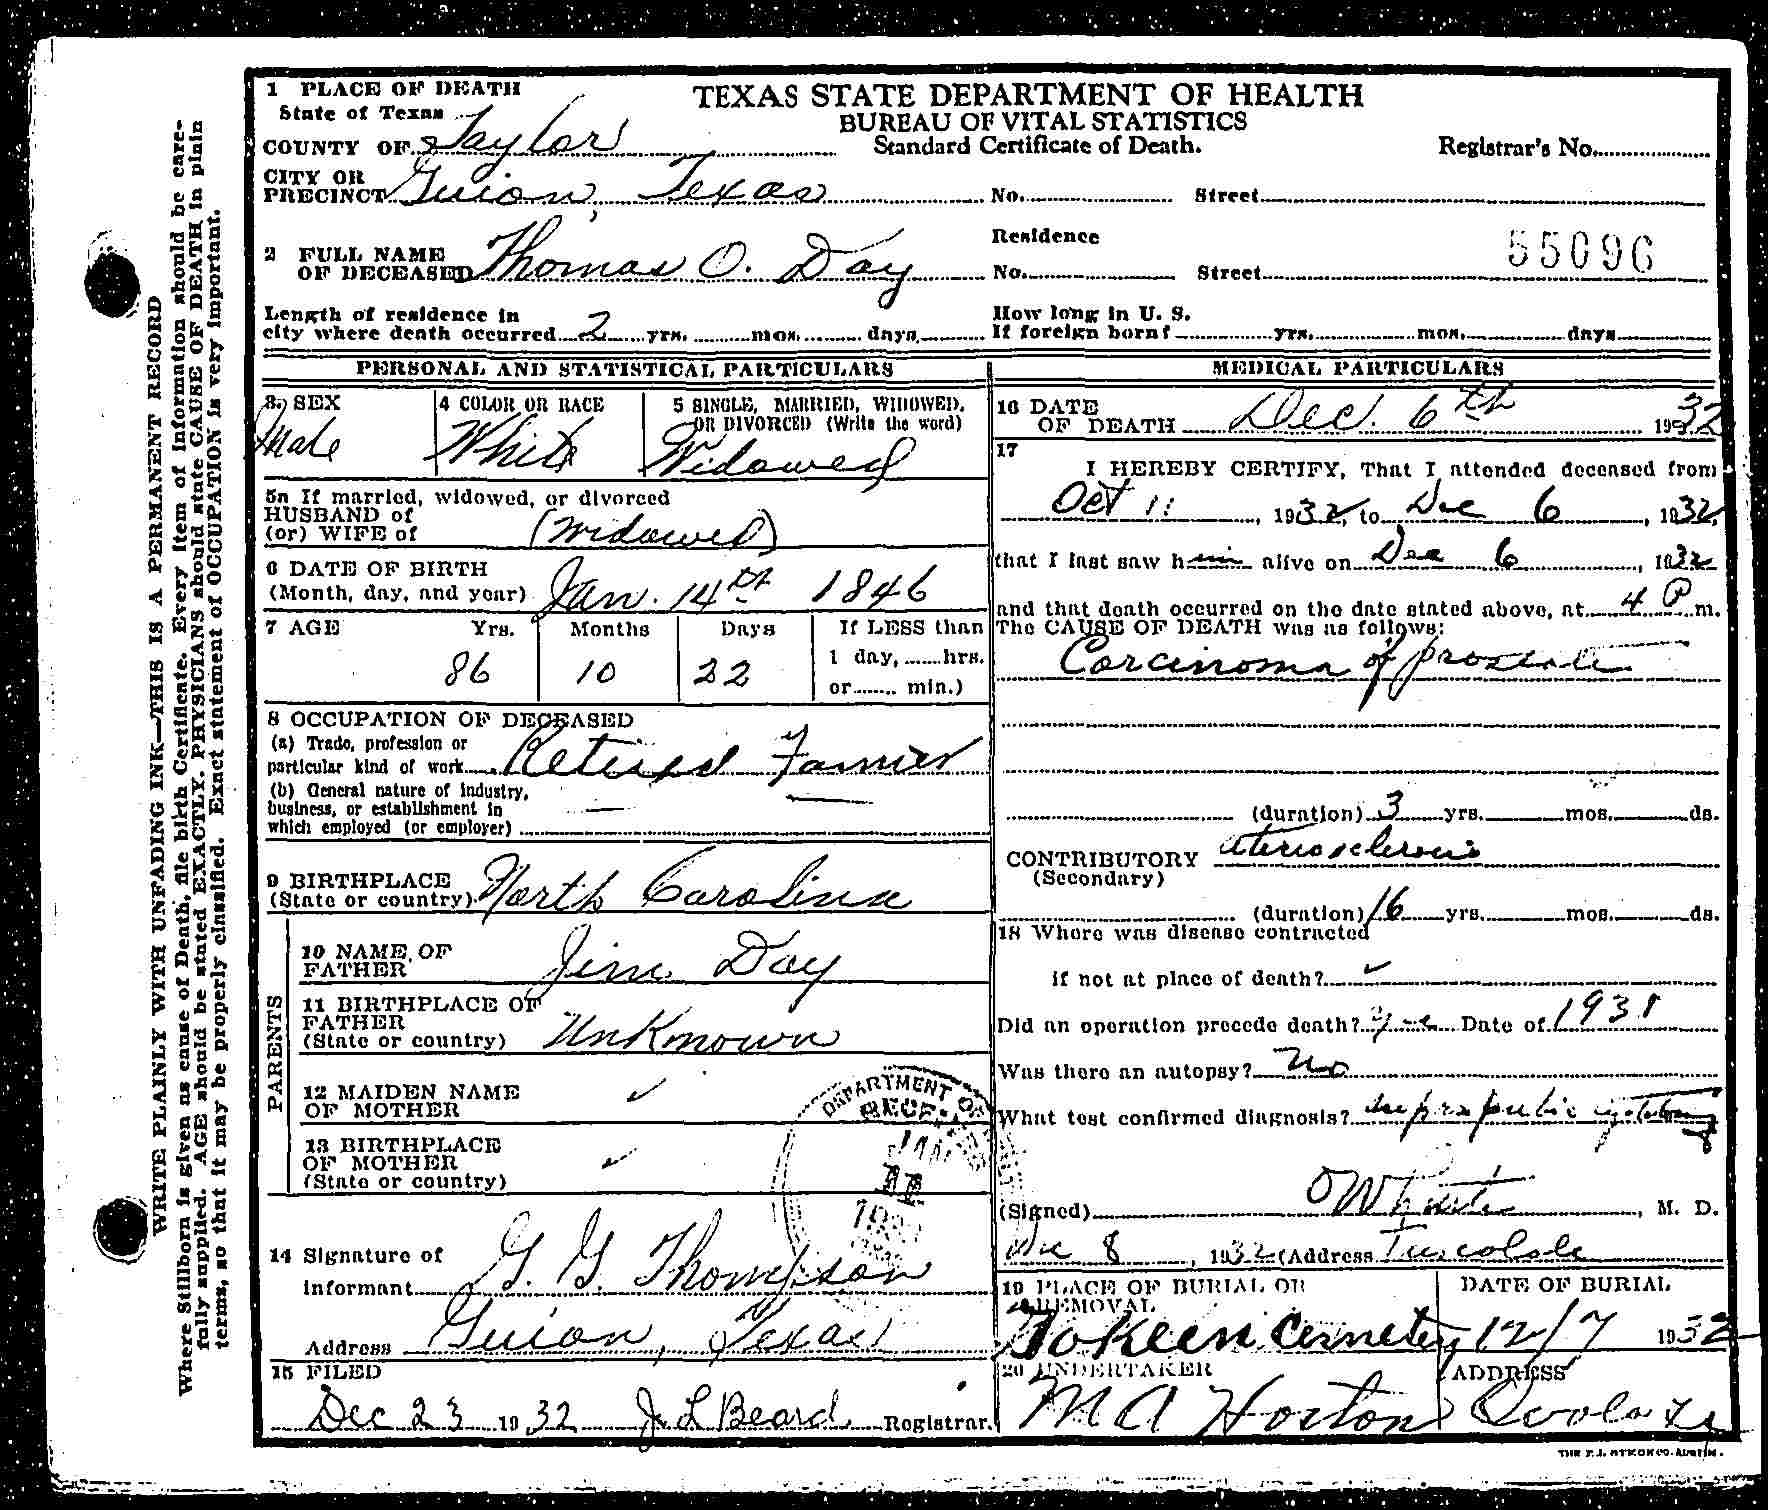 WRITE PLAINLY WITH UNFADING INK—THIS IS A PERMANENT RECORD
Where Stillborn is given as cause of Death, file birth Certificate. Every item of information should be care-
fully supplied. AGE should be stated EXACTLY. PHYSICIANS should state CAUSE OF DEATH in plain
terms, so that it may be properly classified. Exact statement of OCCUPATION is very important.
TEXAS STATE DEPARTMENT OF HEALTH
BUREAU OF VITAL STATISTICS
Standard Certificate of Death.
Registrar's No.
1 PLACE OF DEATH
State of Texas
COUNTY OF Taylor
CITY OR
PRECINCT Guion, Texas No. Street
2 FULL NAME
OF DECEASED Thomas O. Day
Residence
No. Street
55096
Length of residence in
city where death occurred 2 yrs. mos. days.
How long in U. S.
If foreign born? yrs. mos. days
PERSONAL AND STATISTICAL PARTICULARS
3 SEX
Male
4 COLOR OR RACE
White
5 SINGLE, MARRIED, WIDOWED,
OR DIVORCED (Write the word)
Widowed
5a If married, widowed, or divorced
HUSBAND of
(or) WIFE of (Widowed)
6 DATE OF BIRTH
(Month, day, and year) Jan. 14th 1846
7 AGE Yrs. Months Days If LESS than
1 day, hrs.
or min.)
86 10 22
8 OCCUPATION OF DECEASED
(a) Trade, profession or
particular kind of work Retired Farmer
(b) General nature of industry,
business, or establishment in
which employed (or employer)
9 BIRTHPLACE
(State or country) North Carolina
PARENTS
10 NAME OF
FATHER Jim Day
11 BIRTHPLACE OF
FATHER
(State or country) Unknown
12 MAIDEN NAME
OF MOTHER ✓
13 BIRTHPLACE
OF MOTHER ✓
(State or country)
14 Signature of
Informant G. G. Thompson
Address Guion, Texas
15 FILED
Dec 23 1932 J L Beard Registrar.
DEPARTMENT OF
MEDICAL PARTICULARS
16 DATE
OF DEATH Dec. 6th 1932
17
I HEREBY CERTIFY, That I attended deceased from
Oct 11, 1932, to Dec 6, 1932,
that I last saw him alive on Dec 6, 1932
and that death occurred on the date stated above, at 4 P m.
The CAUSE OF DEATH was as follows:
Carcinoma of prostate
(duration) 3 yrs. mos. ds.
CONTRIBUTORY
(Secondary) Aterosclerosis
(duration) 16 yrs. mos. ds.
18 Where was disease contracted
if not at place of death? ✓
Did an operation precede death? yes Date of 1931
Was there an autopsy? No
What test confirmed diagnosis? suprapubic cystotomy
(Signed) , M. D.
Dec 8, 1932 (Address Tuscola
19 PLACE OF BURIAL OR
REMOVAL
DATE OF BURIAL
Cemetery 12/7 1932
20 UNDERTAKER
M A Horton
ADDRESS
Ovalo
THE F.J. CO. AUSTIN.